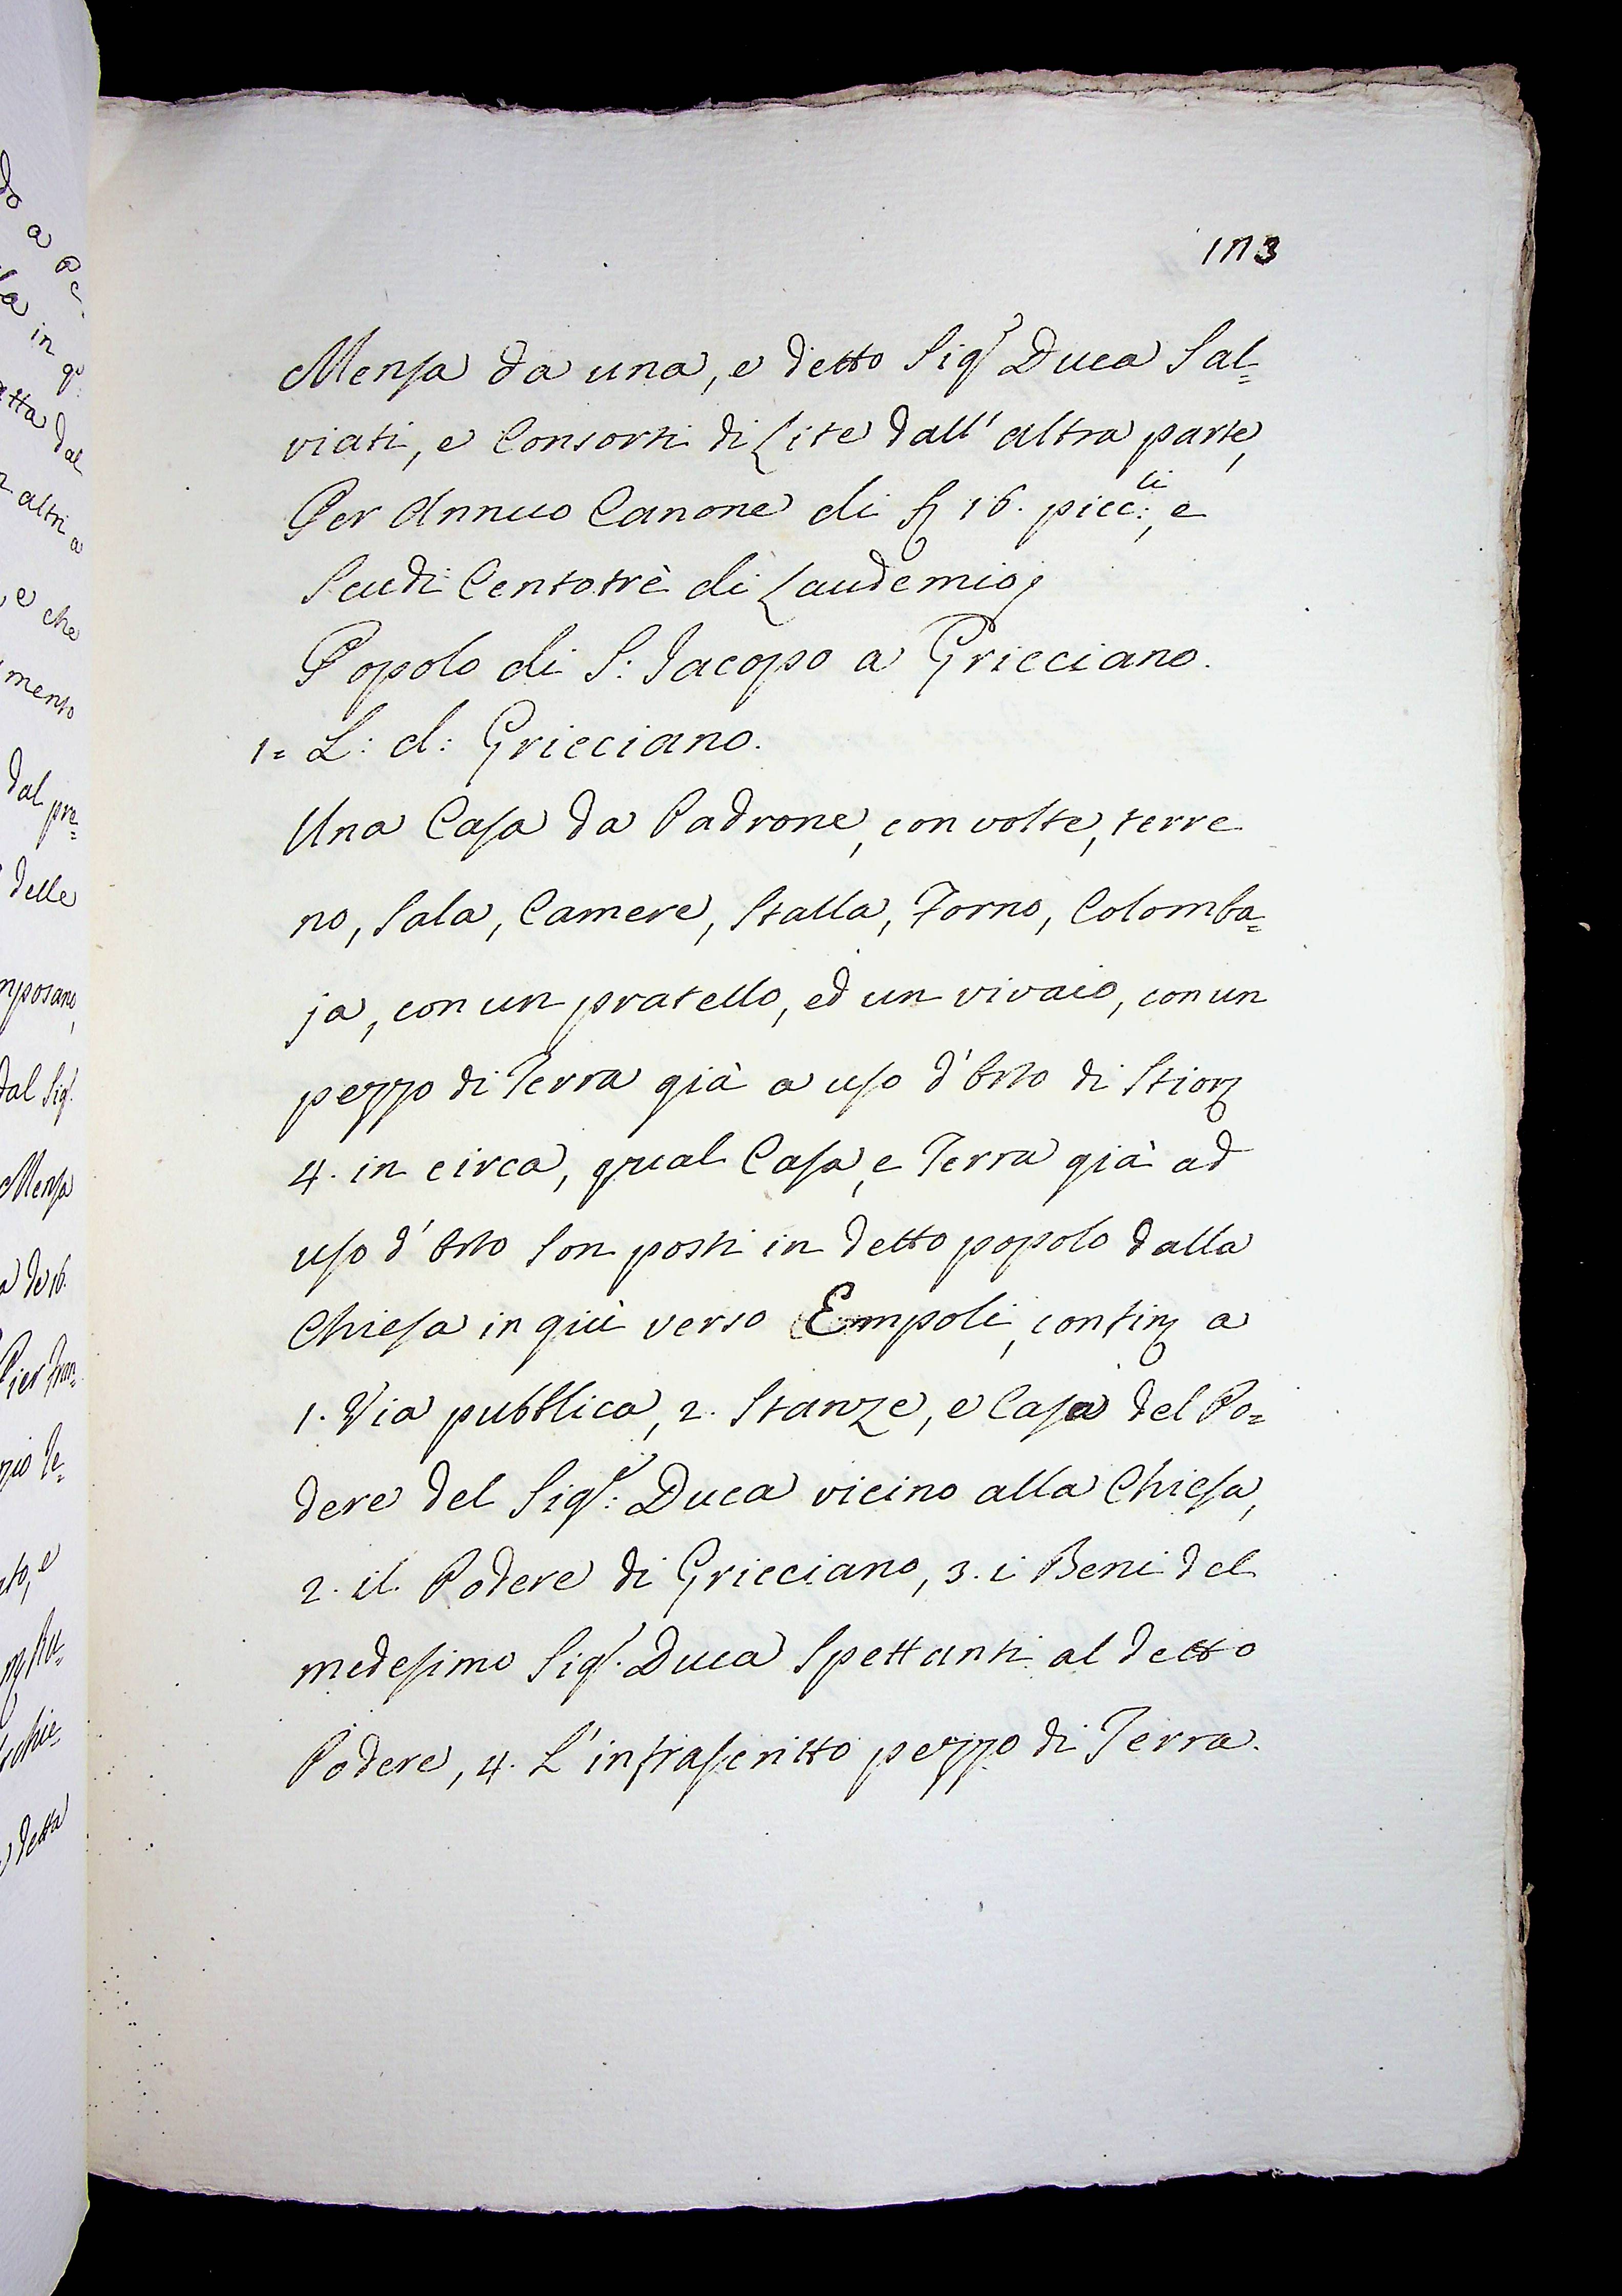 173
Mensa da una, e detto Sig.r Duca Sal=
viati, e Consorti di Lite dall' altra parte,
Per Annuo Canone di 16. picc:li, e
Scudi Centotrè di Laudemio;
Popolo di S: Jacopo a Gricciano.
1= L: d: Gricciano.
Una Casa da Padrone, con volte, terre
no, Sala, Camere, Stalla, Forno, Colomba=
ja, con un pratello, ed un vivaio, con un
pezzo di Terra già a uso d' Orto di Stior
4. in circa, qual Casa, e Terra già ad
uso d' Orto son posti in detto popolo dalla
Chiesa in giù verso Empoli, confin a
1. Via pubblica, 2. Stanze, e Casa del Po=
dere del Sig.re: Duca vicino alla Chiesa,
2. il Podere di Gricciano, 3. i Beni del
medesimo Sig.r Duca Spettanti al detto
Podere, 4. L' infrascritto pezzo di Terra.
dal pre=
delle
mposano,
dal Sig.r
Mensa
de 16.
Pier Fran=
detta
altri a
e che
mento